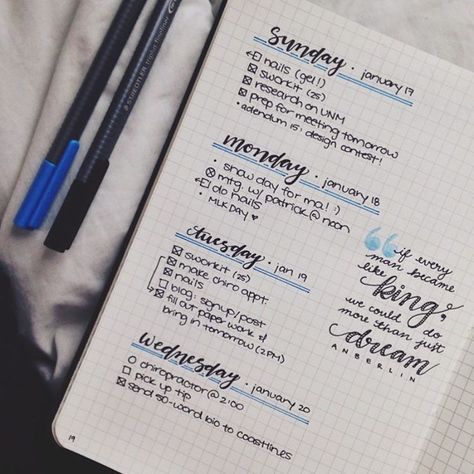 STAEDTLER triplus fineliner
Sunday · january 17
nails (gel!)
sworkit (25)
research on UNM
prep for meeting tomorrow
• adendum design contest!
monday · january 18
• snow day for ma! :)
mtg. w/ patrick @ noon
do nails
• MLK Day ♥
tuesday · jan 19
sworkit (25)
make chiro appt.
nails
blog: signup/post
fill out paper work &
bring in tomorrow (2PM)
wednesday · january 20
chiropractor @ 2:00
pick up tip
send 50-word bio to coastlines
“if every
man became
like
king,
we could do
more than just
dream
ANBERLIN
19